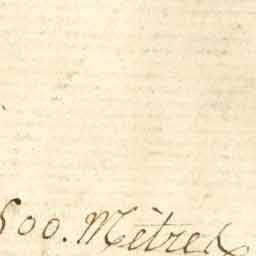 500. Mètres